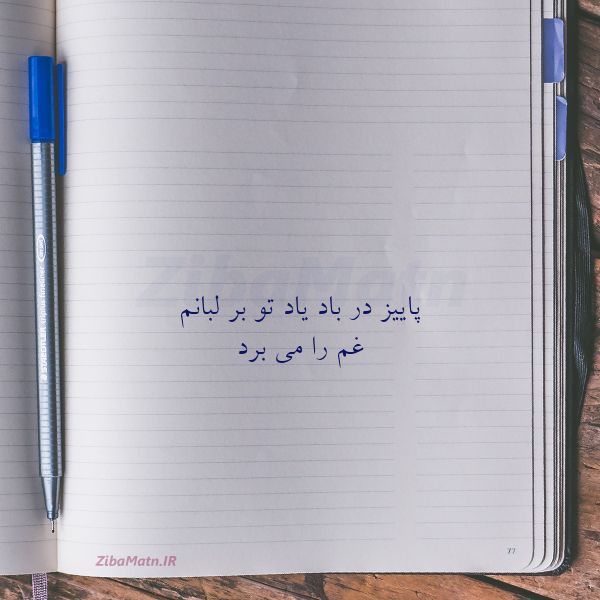 ZibaMatn
پاییز در باد یاد تو بر لبانم
غم را می برد
STAEDTLER triplus fineliner
77
ZibaMatn.IR